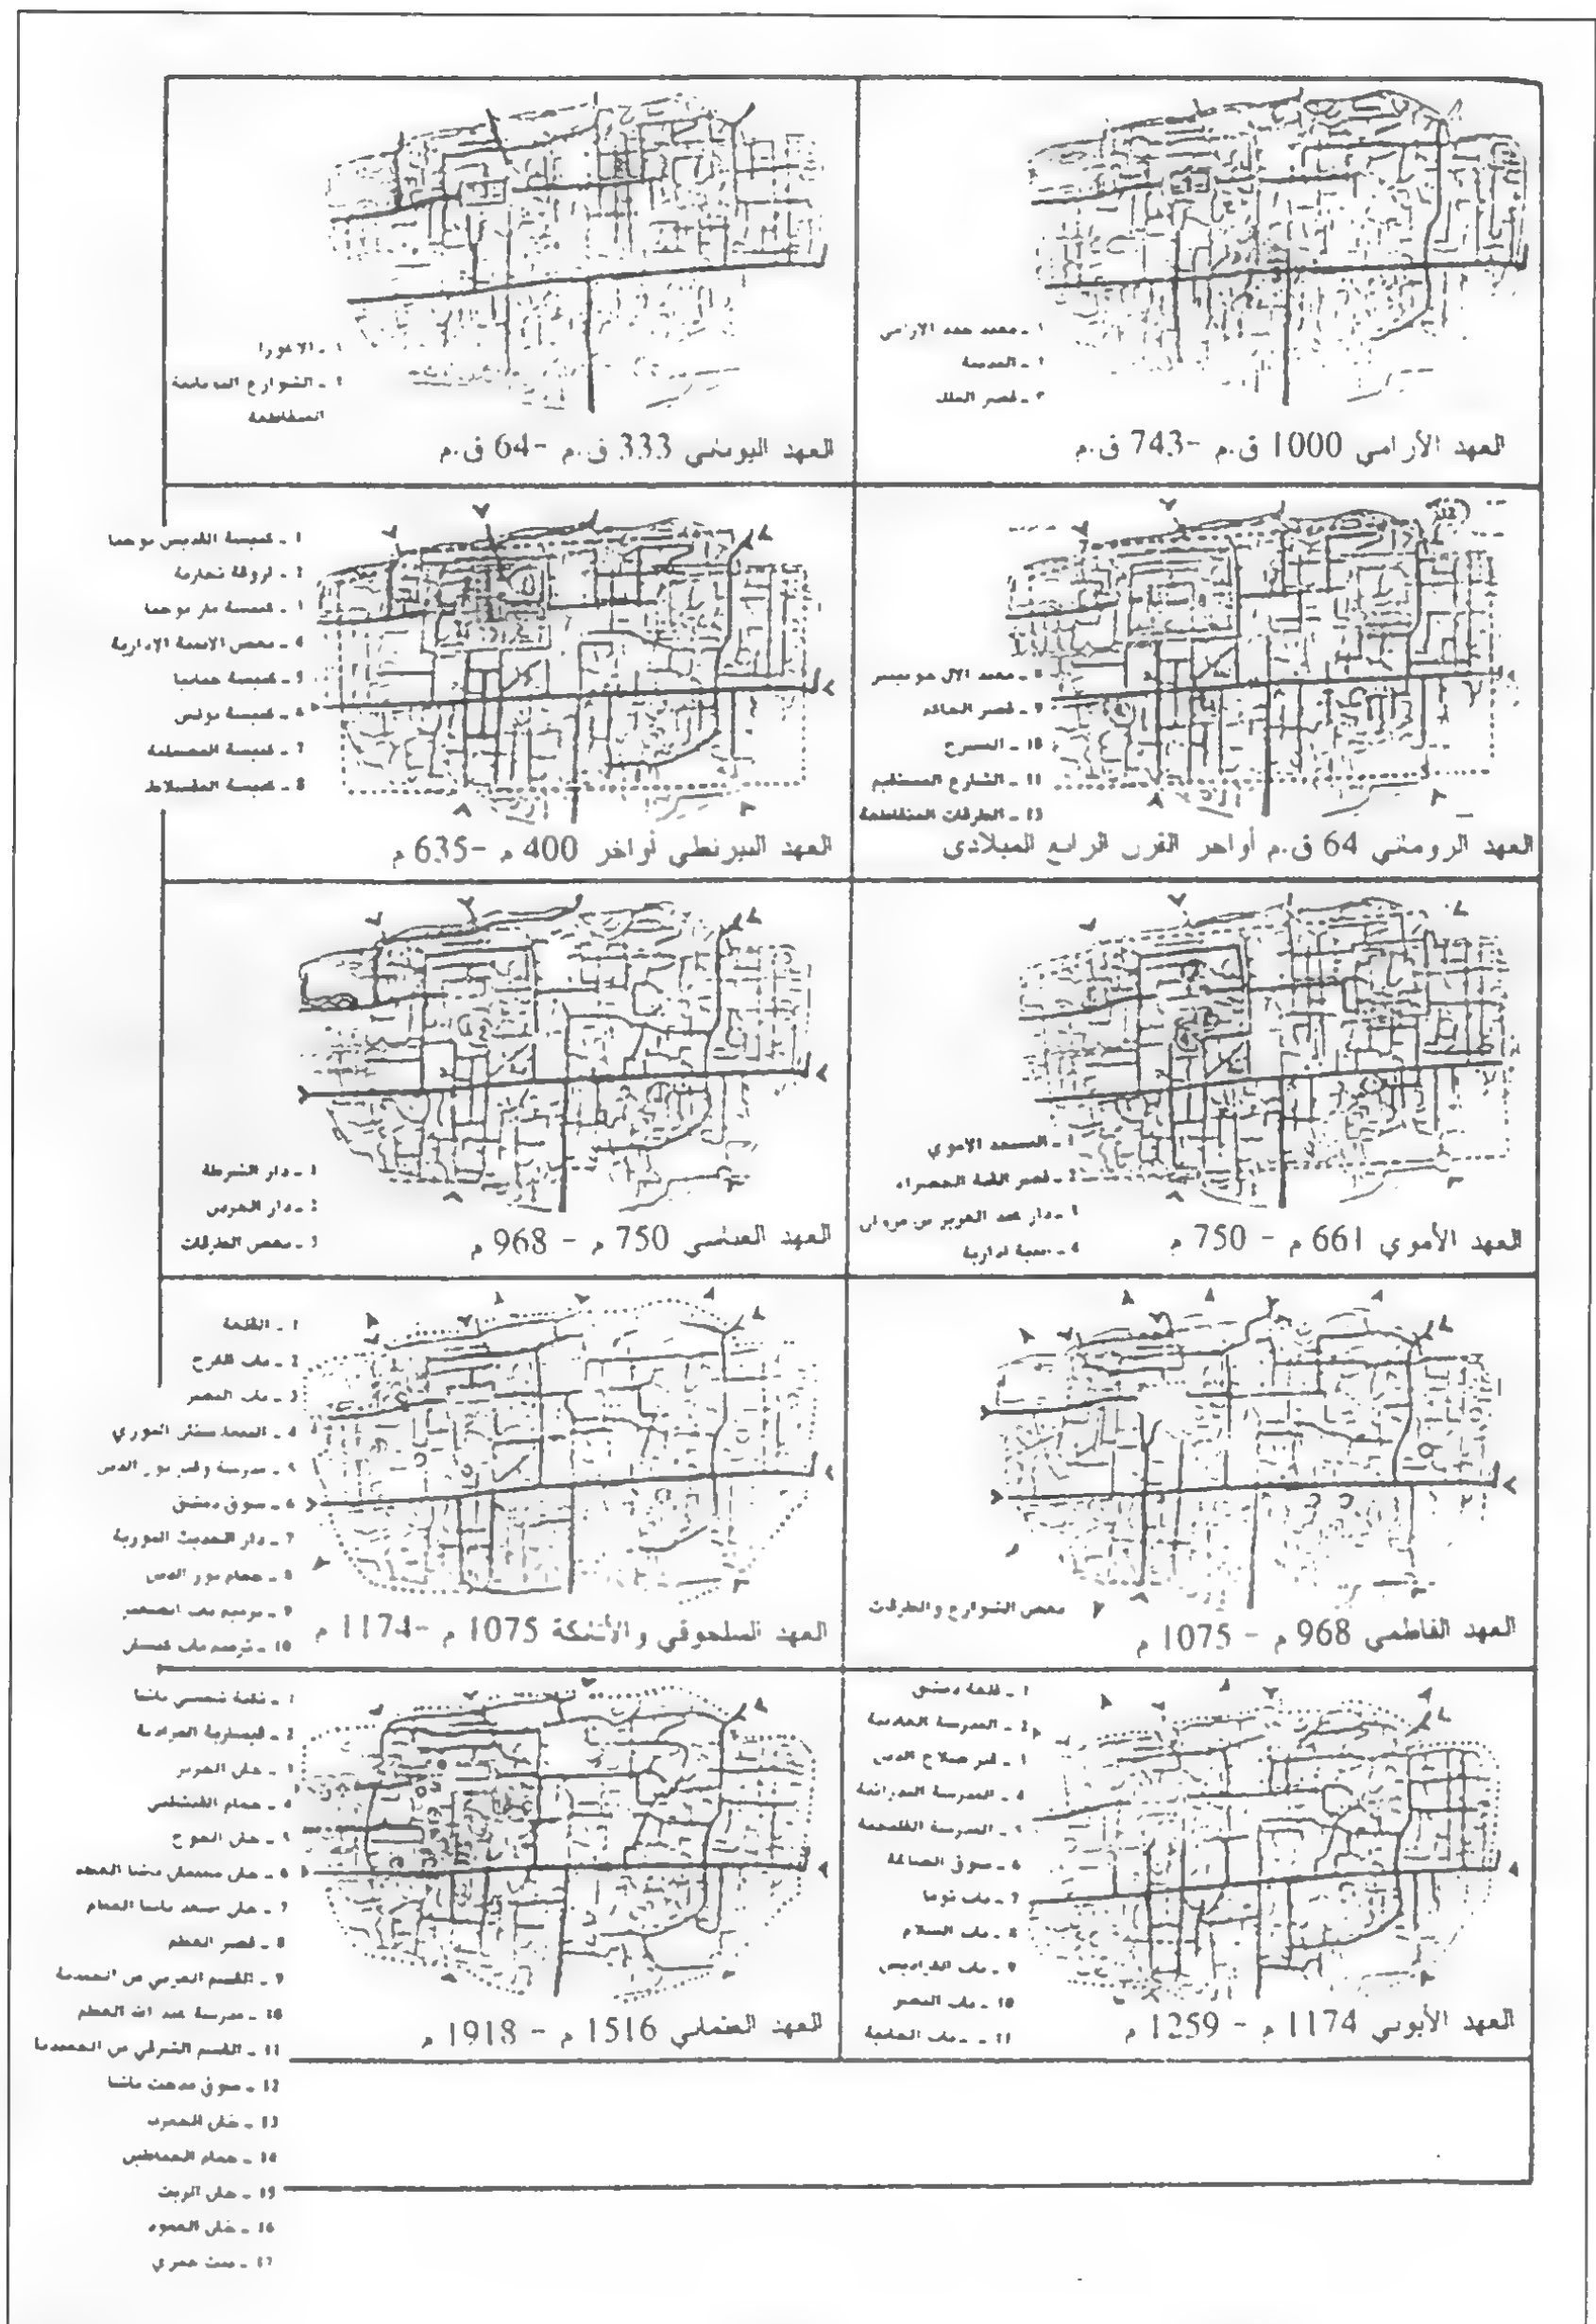 1 - معبد حدد الارامي
2 - المدينة
3 - قصر الملك
العهد الأرامي 1000 ق.م -743 ق.م
1 - الاغورا
2 - الشوارع
المتقاطعة
العهد اليوناني 333 ق.م -64 ق.م
8 - معبد الاله جوبيتر
9 - قصر الحاكم
10 - المسرح
11 - الشارع المستقيم
13 - الطرقات المتقاطعة
العهد الروماني 64 ق.م أواخر القرن الرابع الميلادي
1 - كنيسة القديس يوحنا
2 - اروقة تجارية
3 - كنيسة مار يوحنا
4 - بعض الابنية الادارية
5 - كنيسة حنانيا
6 - كنيسة بولس
7 - كنيسة المصلبة
8 - كنيسة المقسلاط
العهد البيزنطي أواخر 400 م -635 م
1 - المسجد الاموي
2 - قصر القبة الخضراء
3 - دار عبد العزيز بن مروان
4 - ابنية ادارية
العهد الأموي 661 م - 750 م
1 - دار الشرطة
2 - دار الحرس
3 - بعض الطرقات
العهد العباسي 750 م - 968 م
بعض الشوارع والطرقات
العهد الفاطمي 968 م - 1075 م
1 - القلعة
2 - باب الفرج
3 - باب النصر
4 - البيمارستان النوري
5 - مدرسة وقبر نور الدين
6 - سوق دمشق
7 - دار الحديث النورية
8 - حمام نور الدين
9 - ترميم باب الصغير
10 - ترميم باب كيسان
العهد السلجوقي والأتابكة 1075 م -1174 م
1 - قلعة دمشق
2 - المدرسة العادلية
3 - قبر صلاح الدين
4 - المدرسة
5 - المدرسة القليجية
6 - سوق الصاغة
7 - باب توما
8 - باب السلام
9 - باب الفراديس
10 - باب النصر
11 - باب الجابية
العهد الأيوبي 1174 م - 1259 م
1 - تكية شمسي باشا
2 - قيسارية المرادية
3 - خان الحرير
4 - حمام القيشاني
5 - خان الجوخ
6 - خان سليمان باشا العظم
7 - خان اسعد باشا العظم
8 - قصر العظم
9 - القسم الغربي من الحميدية
10 - مدرسة عبد الله العظم
11 - القسم الشرقي من الحميدية
12 - سوق مدحت باشا
13 - خان
14 - حمام الخياطين
15 - خان الزيت
16 - خان العمود
17 - بيت
العهد العثماني 1516 م - 1918 م